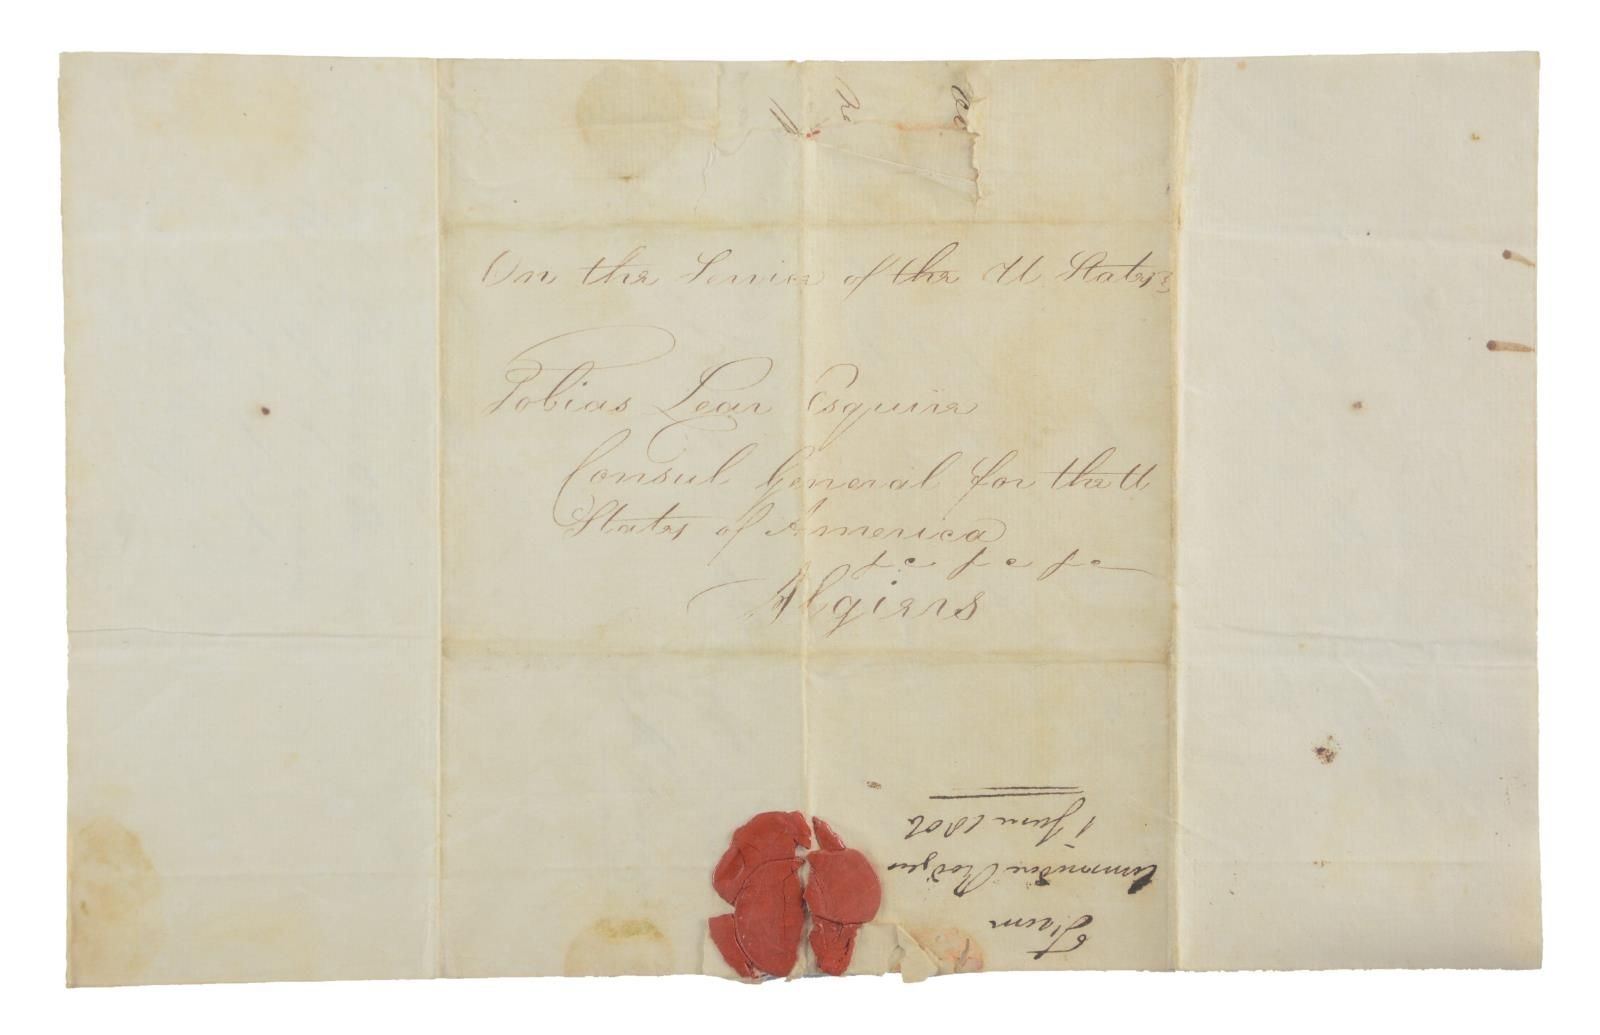 On the Service of the U States
Tobias Lear Esquire
Consul General for the U
States of America
Algiers
From
Commodore Rodgers
1 June 1806